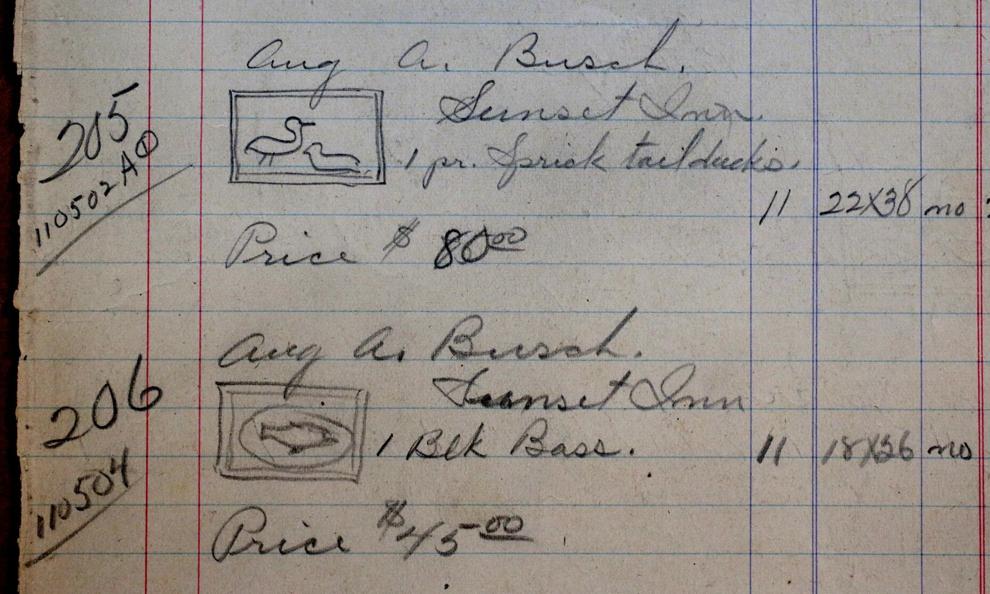 Aug A. Busch.
Sunset Inn.
205
110502 AO
1 pr. Sprick tail ducks.
11 22X38 no
Price $ 80 00
Aug A. Busch.
Sunset Inn
206
110504
1 Blk Bass. 11 18X36 no
Price $45.00